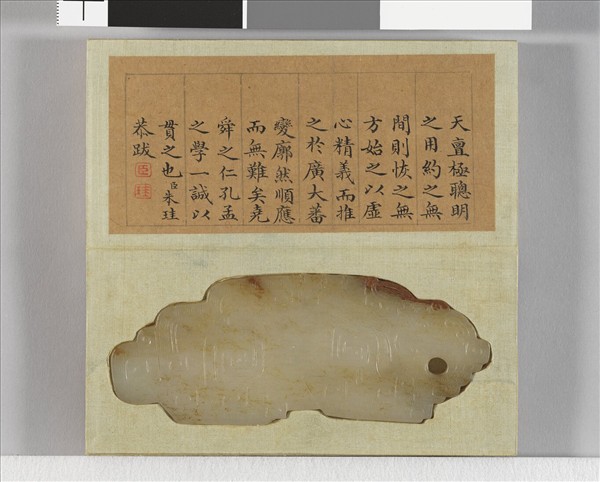 天亶極聰明
之用約之無
間則恢之無
方始之以虛
心精義而推
之於廣大蕃
變廓然順應
而無難矣堯
舜之仁孔孟
之學一誠以
貫之也臣朱珪
恭跋
臣
珪